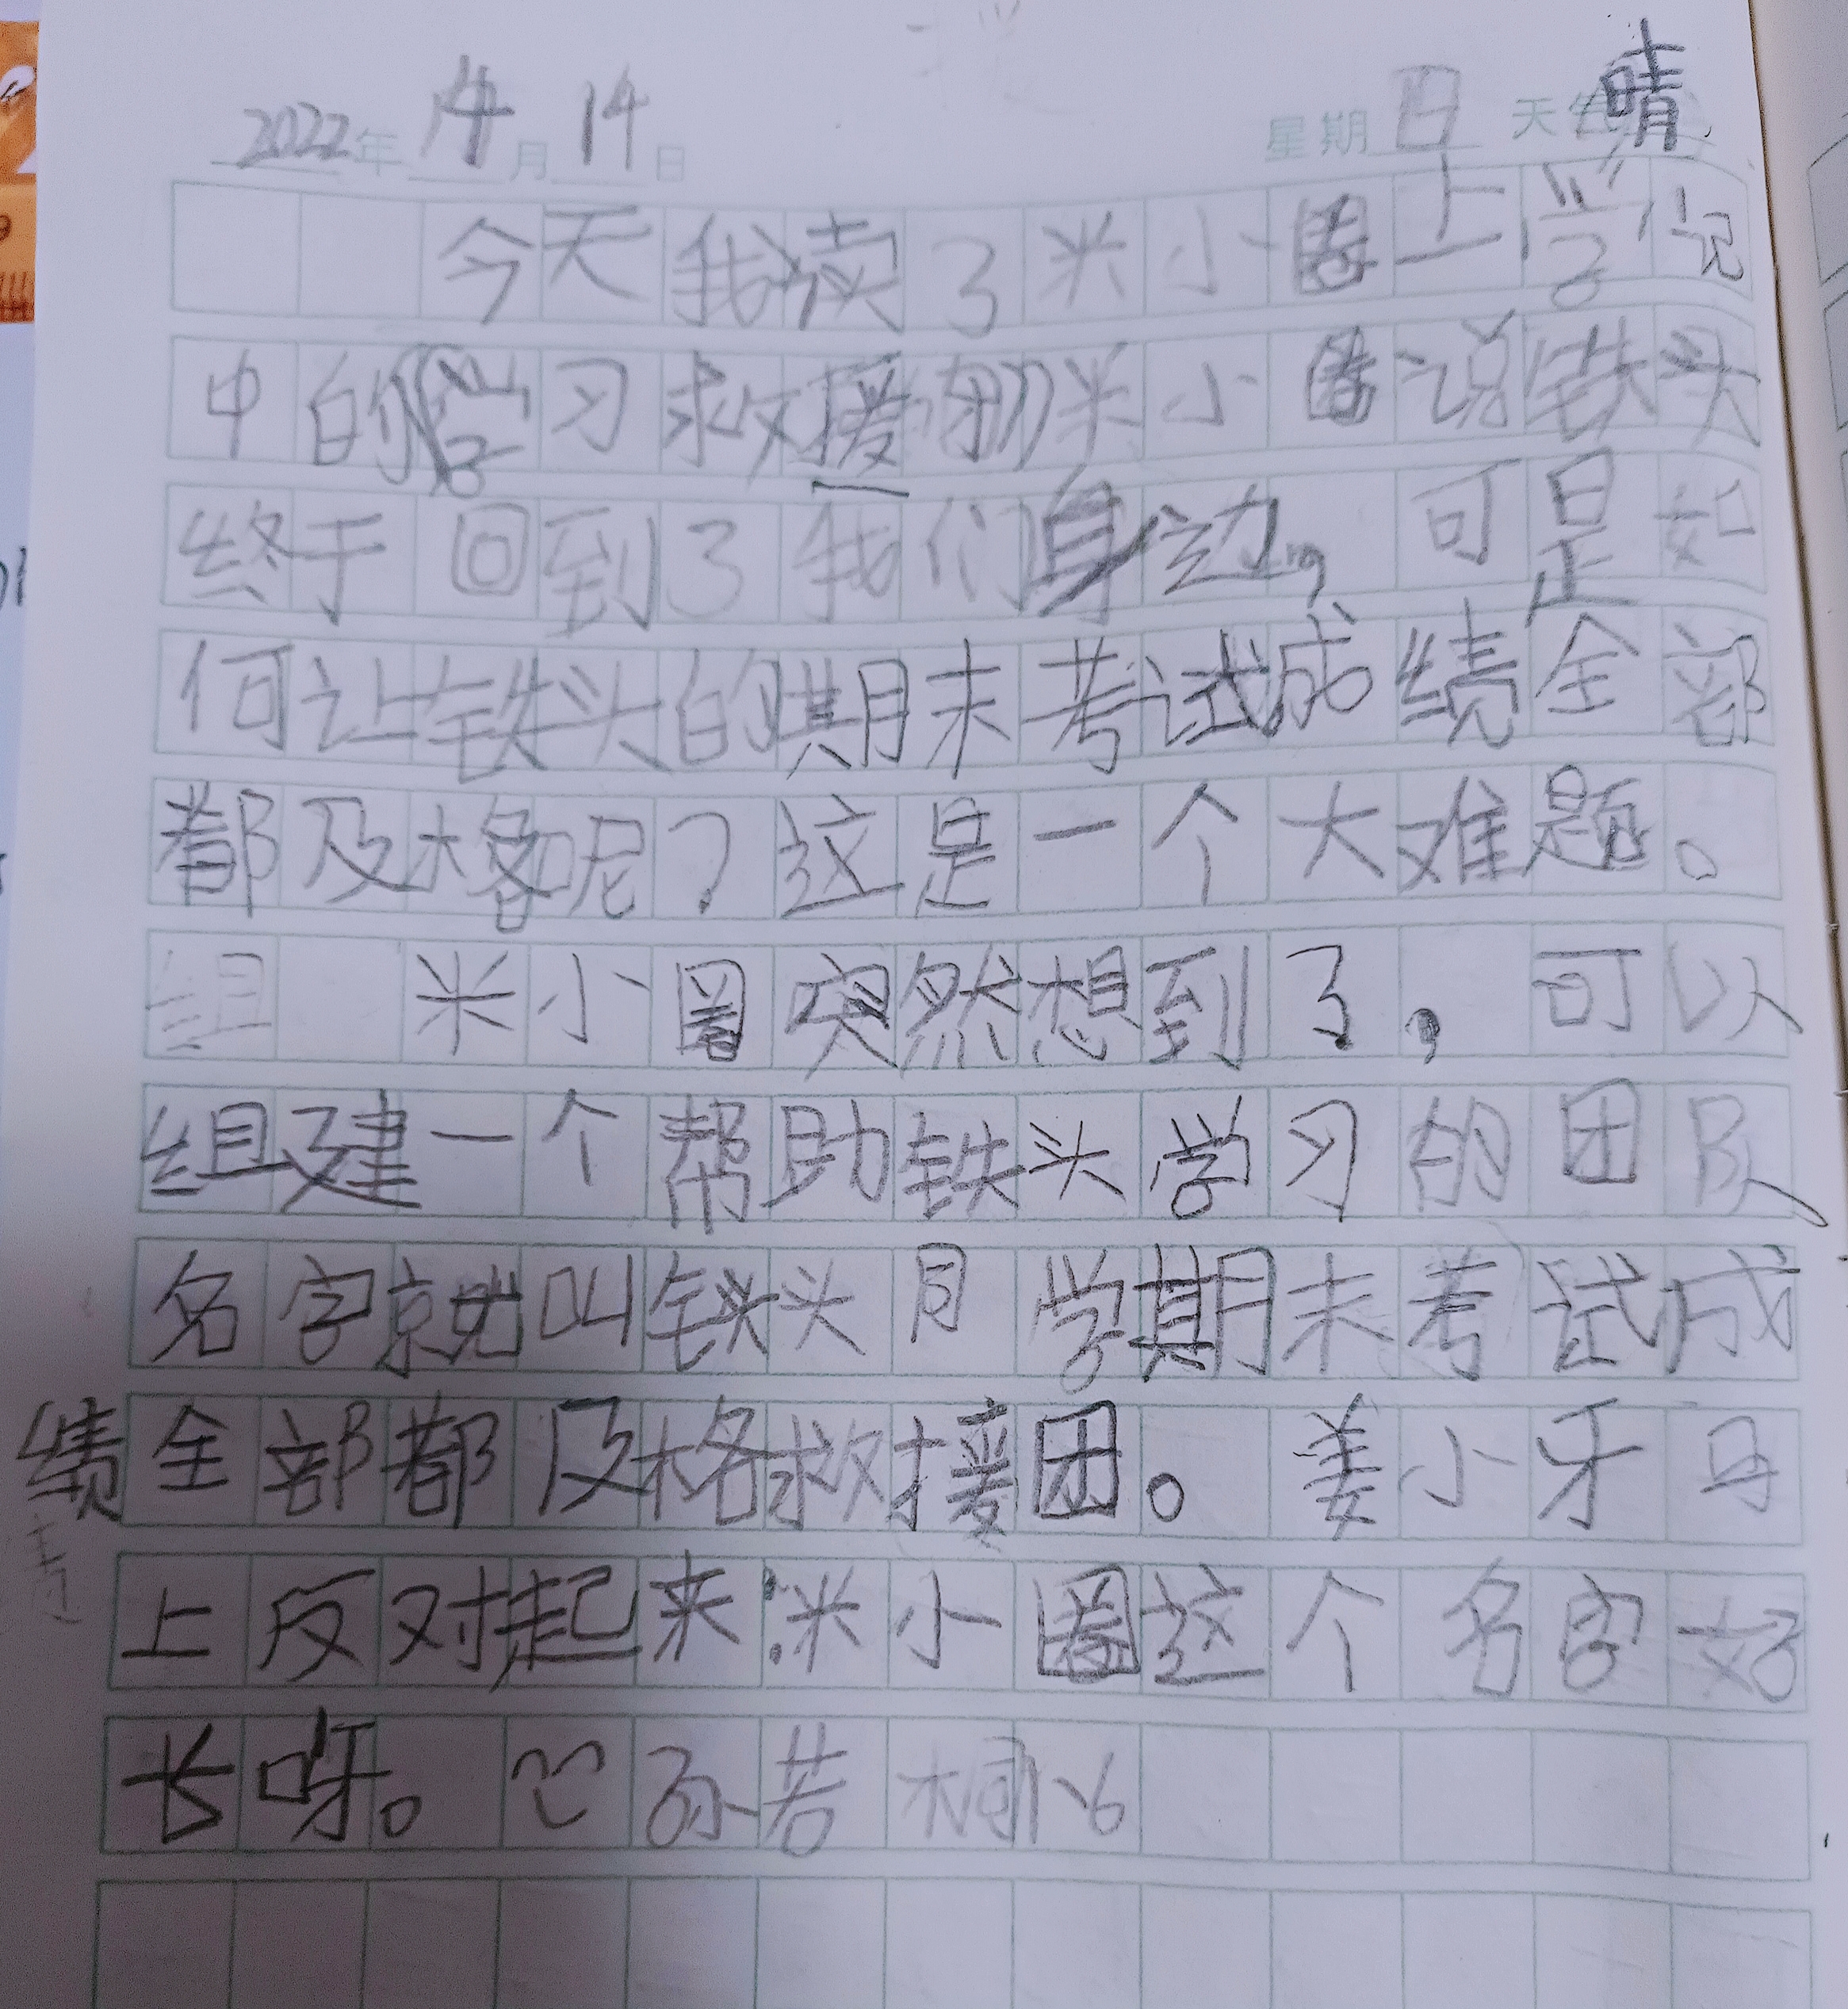 2022年 4月14日 星期日 天气晴
今天我读了米小圈上学记
中的学习救援团米小圈说铁头
终于回到了我们身边，可是如
何让铁头的期末考试成绩全部
都及格呢？这是一个大难题。
组 米小圈突然想到了，可以
组建一个帮助铁头学习的团队
名字就叫铁头同学期末考试成
绩全部都及格救援团。姜小牙马
上反对起来：米小圈这个名字好
长呀。孙若桐